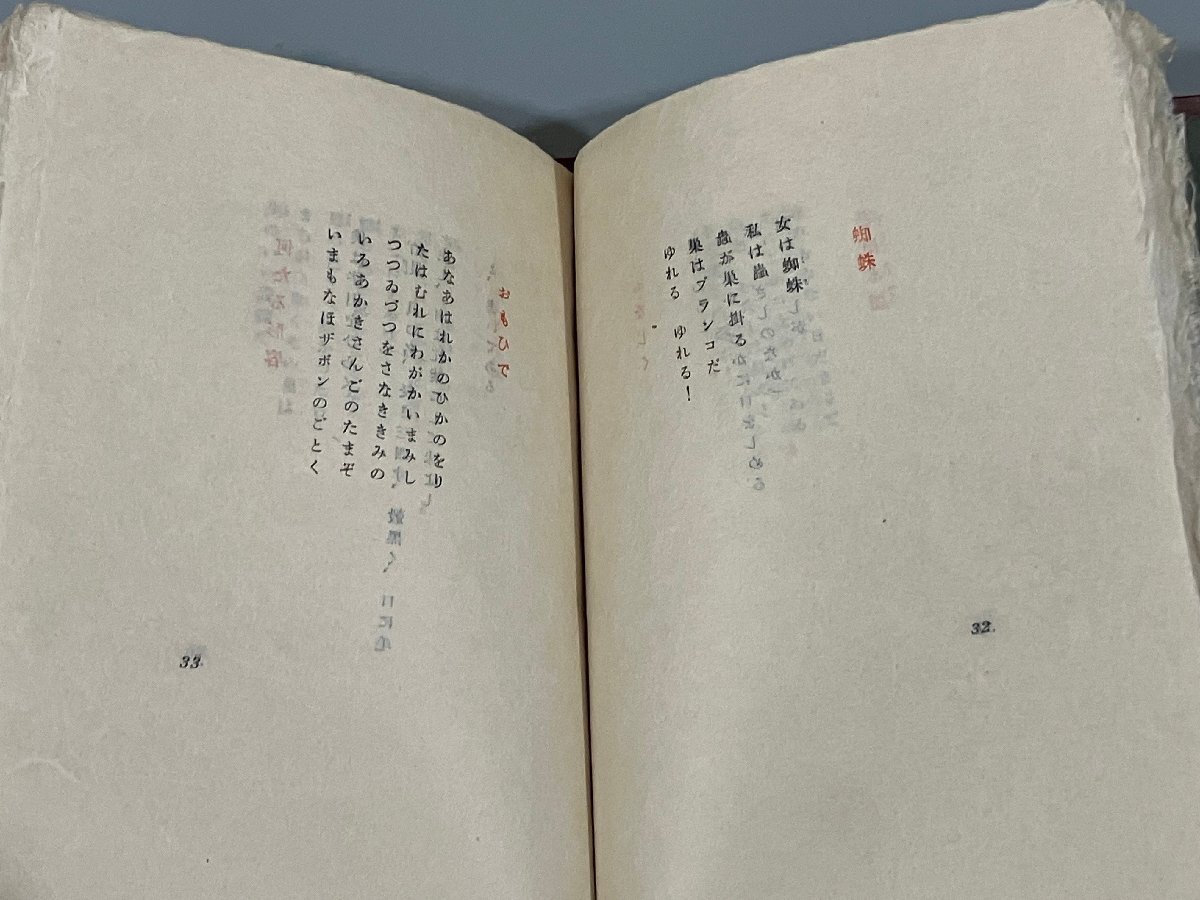 蜘蛛
女は蜘蛛
私は蟲
蟲が巣に掛る
巣はブランコだ
ゆれる ゆれる!
32.
おもひで
あなあはれかのひかのをり
たはむれにわがかいまみし
つつゐづつをさなききみの
いろあかきさんごのたまぞ
いまもなほザボンのごとく
33.